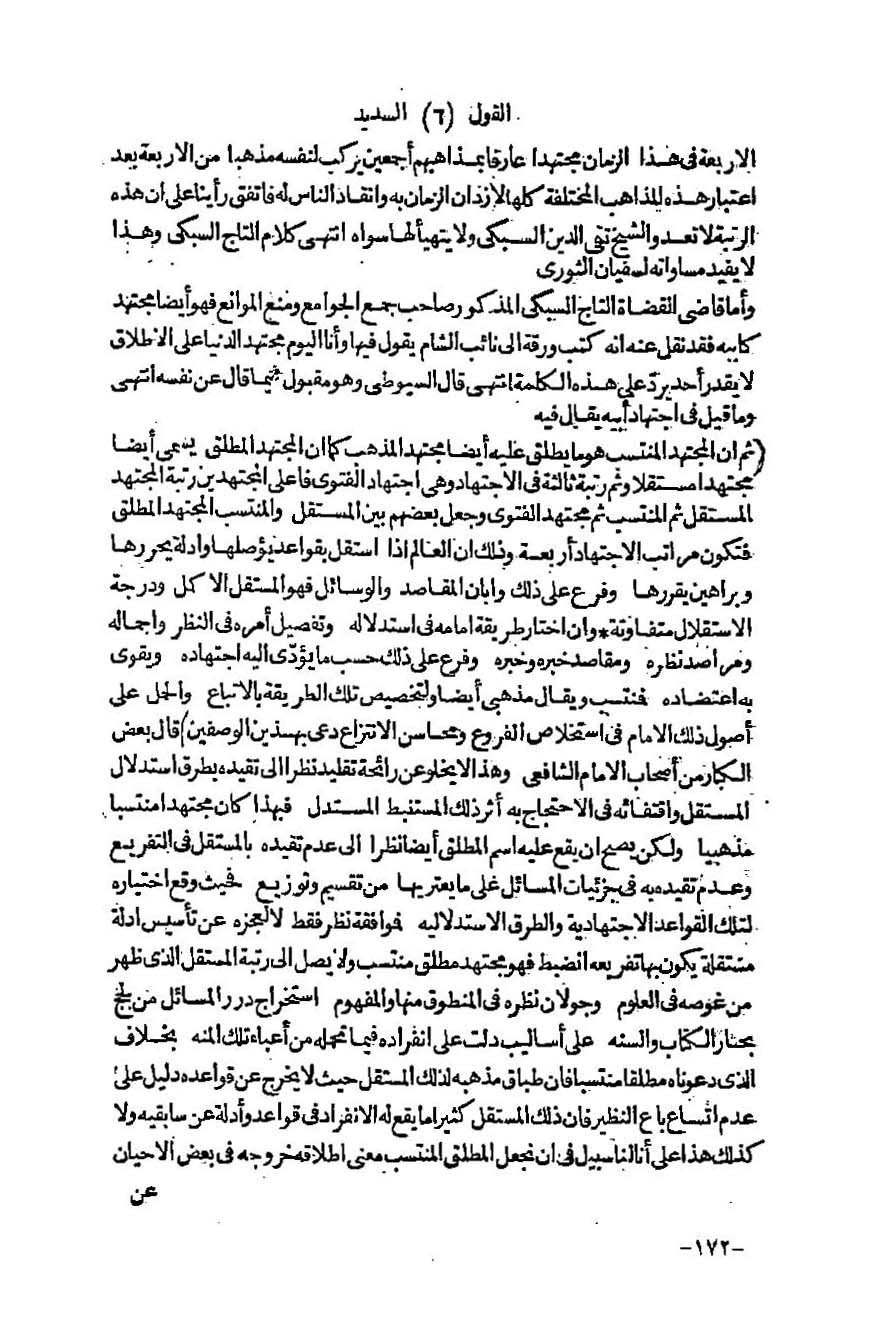 القول (٦) السديد
الاربعة فى هذا الزمان مجتهدا عارفا بمذاهبهم أجمعين يركب لنفسه مذهبا من الاربعة بعد
اعتبار هذه المذاهب المختلفة كلها لازدان الزمان به وانقاد الناس له فاتفق رأينا على ان هذه
الرتبة لا تعدو الشيخ تقى الدين السبكى ولا يتهيأ لها سواه انتهى كلام التاج السبكى وهذا
لا يفيد مساواته لسفيان الثورى
وأما قاضى القضاة التاج السبكى المذكور صاحب جمع الجوامع ومنع الموانع فهو أيضا مجتهد
كابيه فقد نقل عنه انه كتب ورقة الى نائب الشام يقول فيها وأنا اليوم مجتهد الدنيا على الاطلاق
لا يقدر أحد يردّ على هذه الكلمة انتهى قال السيوطى وهو مقبول فيما قال عن نفسه انتهى
وما قيل فى اجتهاد أبيه يقال فيه
(ثم ان المجتهد المنتسب هو ما يطلق عليه أيضا مجتهد المذهب كما ان المجتهد المطلق يدعى أيضا
مجتهدا مستقلا وثم رتبة ثالثة فى الاجتهاد وهى اجتهاد الفتوى فاعلى المجتهدين رتبة المجتهد
المستقل ثم المنتسب ثم مجتهد الفتوى وجعل بعضهم بين المستقل والمنتسب المجتهد المطلق
فتكون مراتب الاجتهاد أربعة وذلك ان العالم اذا استقل بقواعد يؤصلها وادلة يحررها
وبراهين يقررها وفرع على ذلك وابان المقاصد والوسائل فهو المستقل الاكمل ودرجة
الاستقلال متفاوتة * وان اختار طريقة امامه فى استدلاله وتفصيل أمره فى النظر واجماله
ومراصد نظره ومقاصد خبره وخبره وفرع على ذلك حسب ما يؤدّى اليه اجتهاده ويقوى
به اعتضاده فمنتسب ويقال مذهبى أيضا ولتخصيص تلك الطريقة بالاتباع والحمل على
أصول ذلك الامام فى استخلاص الفروع ومحاسن الانتزاع دعى بهذين الوصفين) قال بعض
الكبار من أصحاب الامام الشافعى وهذا لا يخلو عن رائحة تقليد نظرا الى تقيده بطرق استدلال
المستقل واقتفائه فى الاحتجاج به أثر ذلك المستنبط المستدل فبهذا كان مجتهدا منتسبا
مذهبيا ولكن يصح ان يقع عليه اسم المطلق أيضا نظرا الى عدم تقيده بالمستقل فى التفريع
وعدم تقيده به فى جزئيات المسائل على ما يعتريها من تقسيم وتوزيع فحيث وقع اختياره
لتلك القواعد الاجتهادية والطرق الاستدلاليه لموافقة نظر فقط لا لعجزه عن تأسيس ادلة
مستقلة يكون بها تفريعه انضبط فهو مجتهد مطلق منتسب ولا يصل الى رتبة المستقل الذى ظهر
من غوصه فى العلوم وجولان نظره فى المنطوق منها والمفهوم استخراج درر المسائل من لجج
بحار الكتاب والسنه على أساليب دلت على انفراده فيما تحمله من أعباء تلك المنه بخلاف
الذى دعوناه مطلقا منتسبا فان طباق مذهبه لذلك المستقل حيث لا يخرج عن قواعده دليل على
عدم اتساع باع النظير فان ذلك المستقل كثيرا ما يقع له الانفراد فى قواعد وأدلة عن سابقيه ولا
كذلك هذا على أنا لنا سبيل فى ان نجعل المطلق المنتسب معنى اطلاقه خروجه فى بعض الاحيان
عن
-١٧٢-